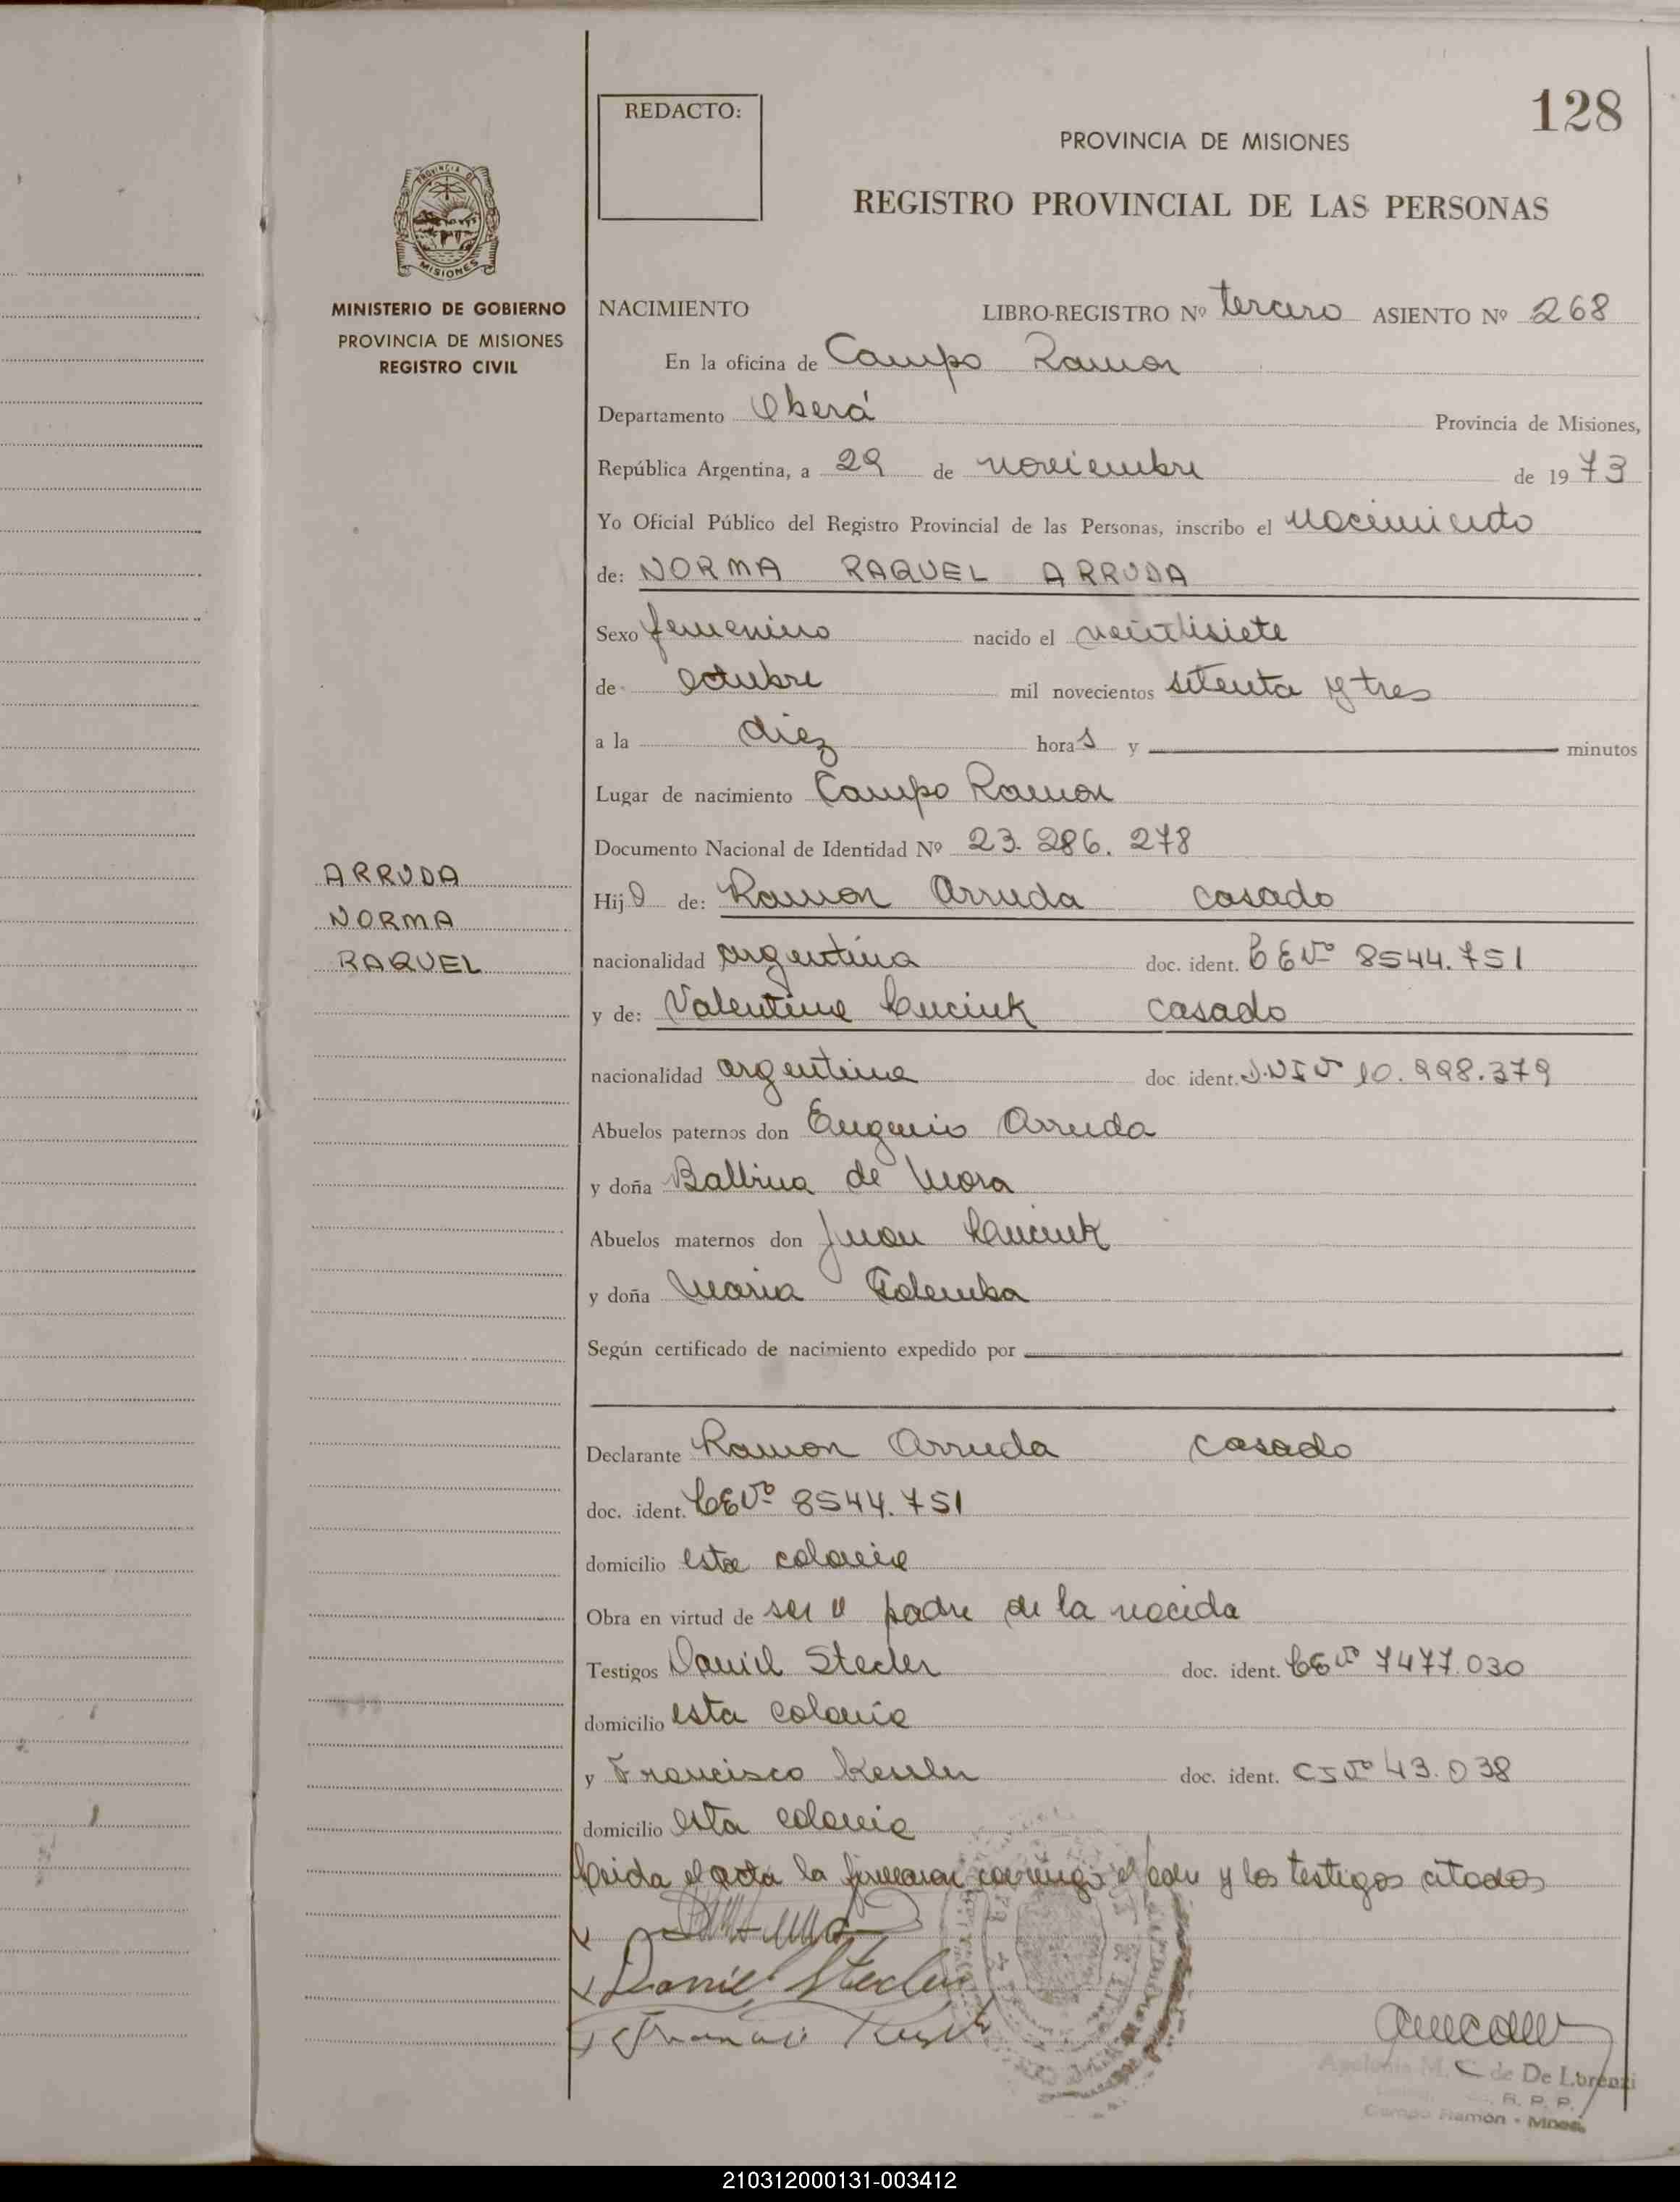 128
REDACTO:
PROVINCIA DE MISIONES
REGISTRO PROVINCIAL DE LAS PERSONAS
PROVINCIA DE
MISIONES
MINISTERIO DE GOBIERNO
PROVINCIA DE MISIONES
REGISTRO CIVIL
NACIMIENTO LIBRO-REGISTRO Nº tercero ASIENTO Nº 268
En la oficina de Campo Ramon
Departamento Oberá Provincia de Misiones,
República Argentina, a 29 de noviembre de 1973
Yo Oficial Público del Registro Provincial de las Personas, inscribo el nacimiento
de: NORMA RAQUEL ARRUDA
Sexo femenino nacido el veintisiete
de octubre mil novecientos setenta y tres
a la diez horas y minutos
Lugar de nacimiento Campo Ramon
Documento Nacional de Identidad Nº 23.286.278
ARRUDA
NORMA
RAQUEL
Hija de: Ramon Arruda casado
nacionalidad argentina doc. ident. LENº 8544.751
y de: Valentina Luciuk casado
nacionalidad argentina doc ident. DNIN 10.998.379
Abuelos paternos don Eugenio Arruda
y doña Balbina de Mora
Abuelos maternos don Juan Luciuk
y doña Maria Golemba
Según certificado de nacimiento expedido por
Declarante Ramon Arruda casado
doc. ident. LENº 8544.751
domicilio esta colonia
Obra en virtud de ser el padre de la nacida
Testigos Daniel Stecler doc. ident. LENº 7477.030
domicilio esta colonia
y Francisco Kessler doc. ident. CINº 43.038
domicilio esta colonia
Leida el acta la firmaron conmigo el y los testigos citados
Daniel Stecler
M. C de De Lorenzi
R. P. P.
Campo Ramón - Mnes.
210312000131-003412